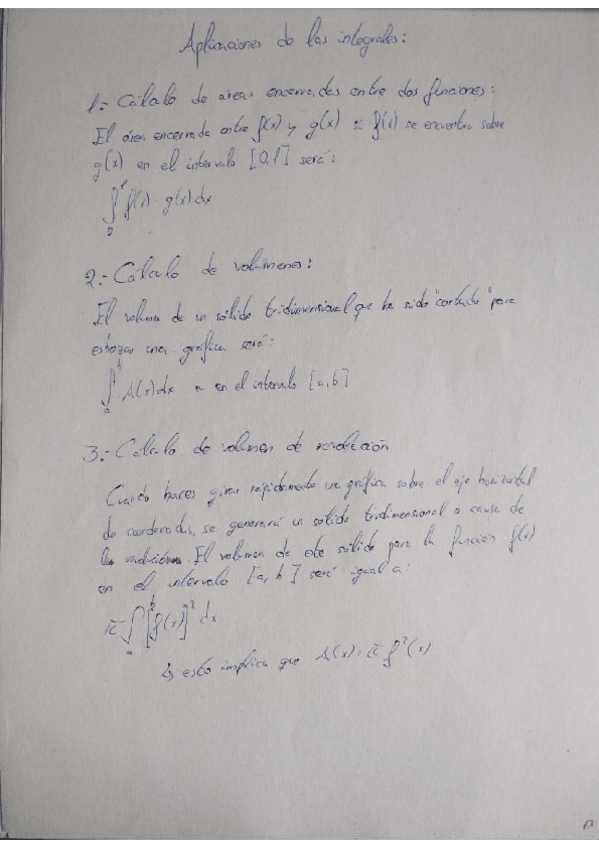 Aplicaciones de las integrales:
1.- Cálculo de áreas encerradas entre dos funciones:
El área encerrada entre f(x) y g(x) si f(x) se encuentra sobre
g(x) en el intervalo [0,1] será:
∫ f(x) - g(x) dx
2.- Cálculo de volúmenes:
El volumen de un sólido tridimensional que ha sido "cortado" para
esbozar una gráfica será:
∫ₐᵇ A(x) dx en el intervalo [a,b]
3.- Cálculo de volumen de revolución
Cuando haces girar rápidamente una gráfica sobre el eje horizontal
de coordenadas, se generará un sólido tridimensional a causa de
El volumen de este sólido para la función f(x)
en el intervalo [a,b] será igual a:
π ∫ₐᵇ [f(x)]² dx
↳ esto implica que A(x) = π f²(x)